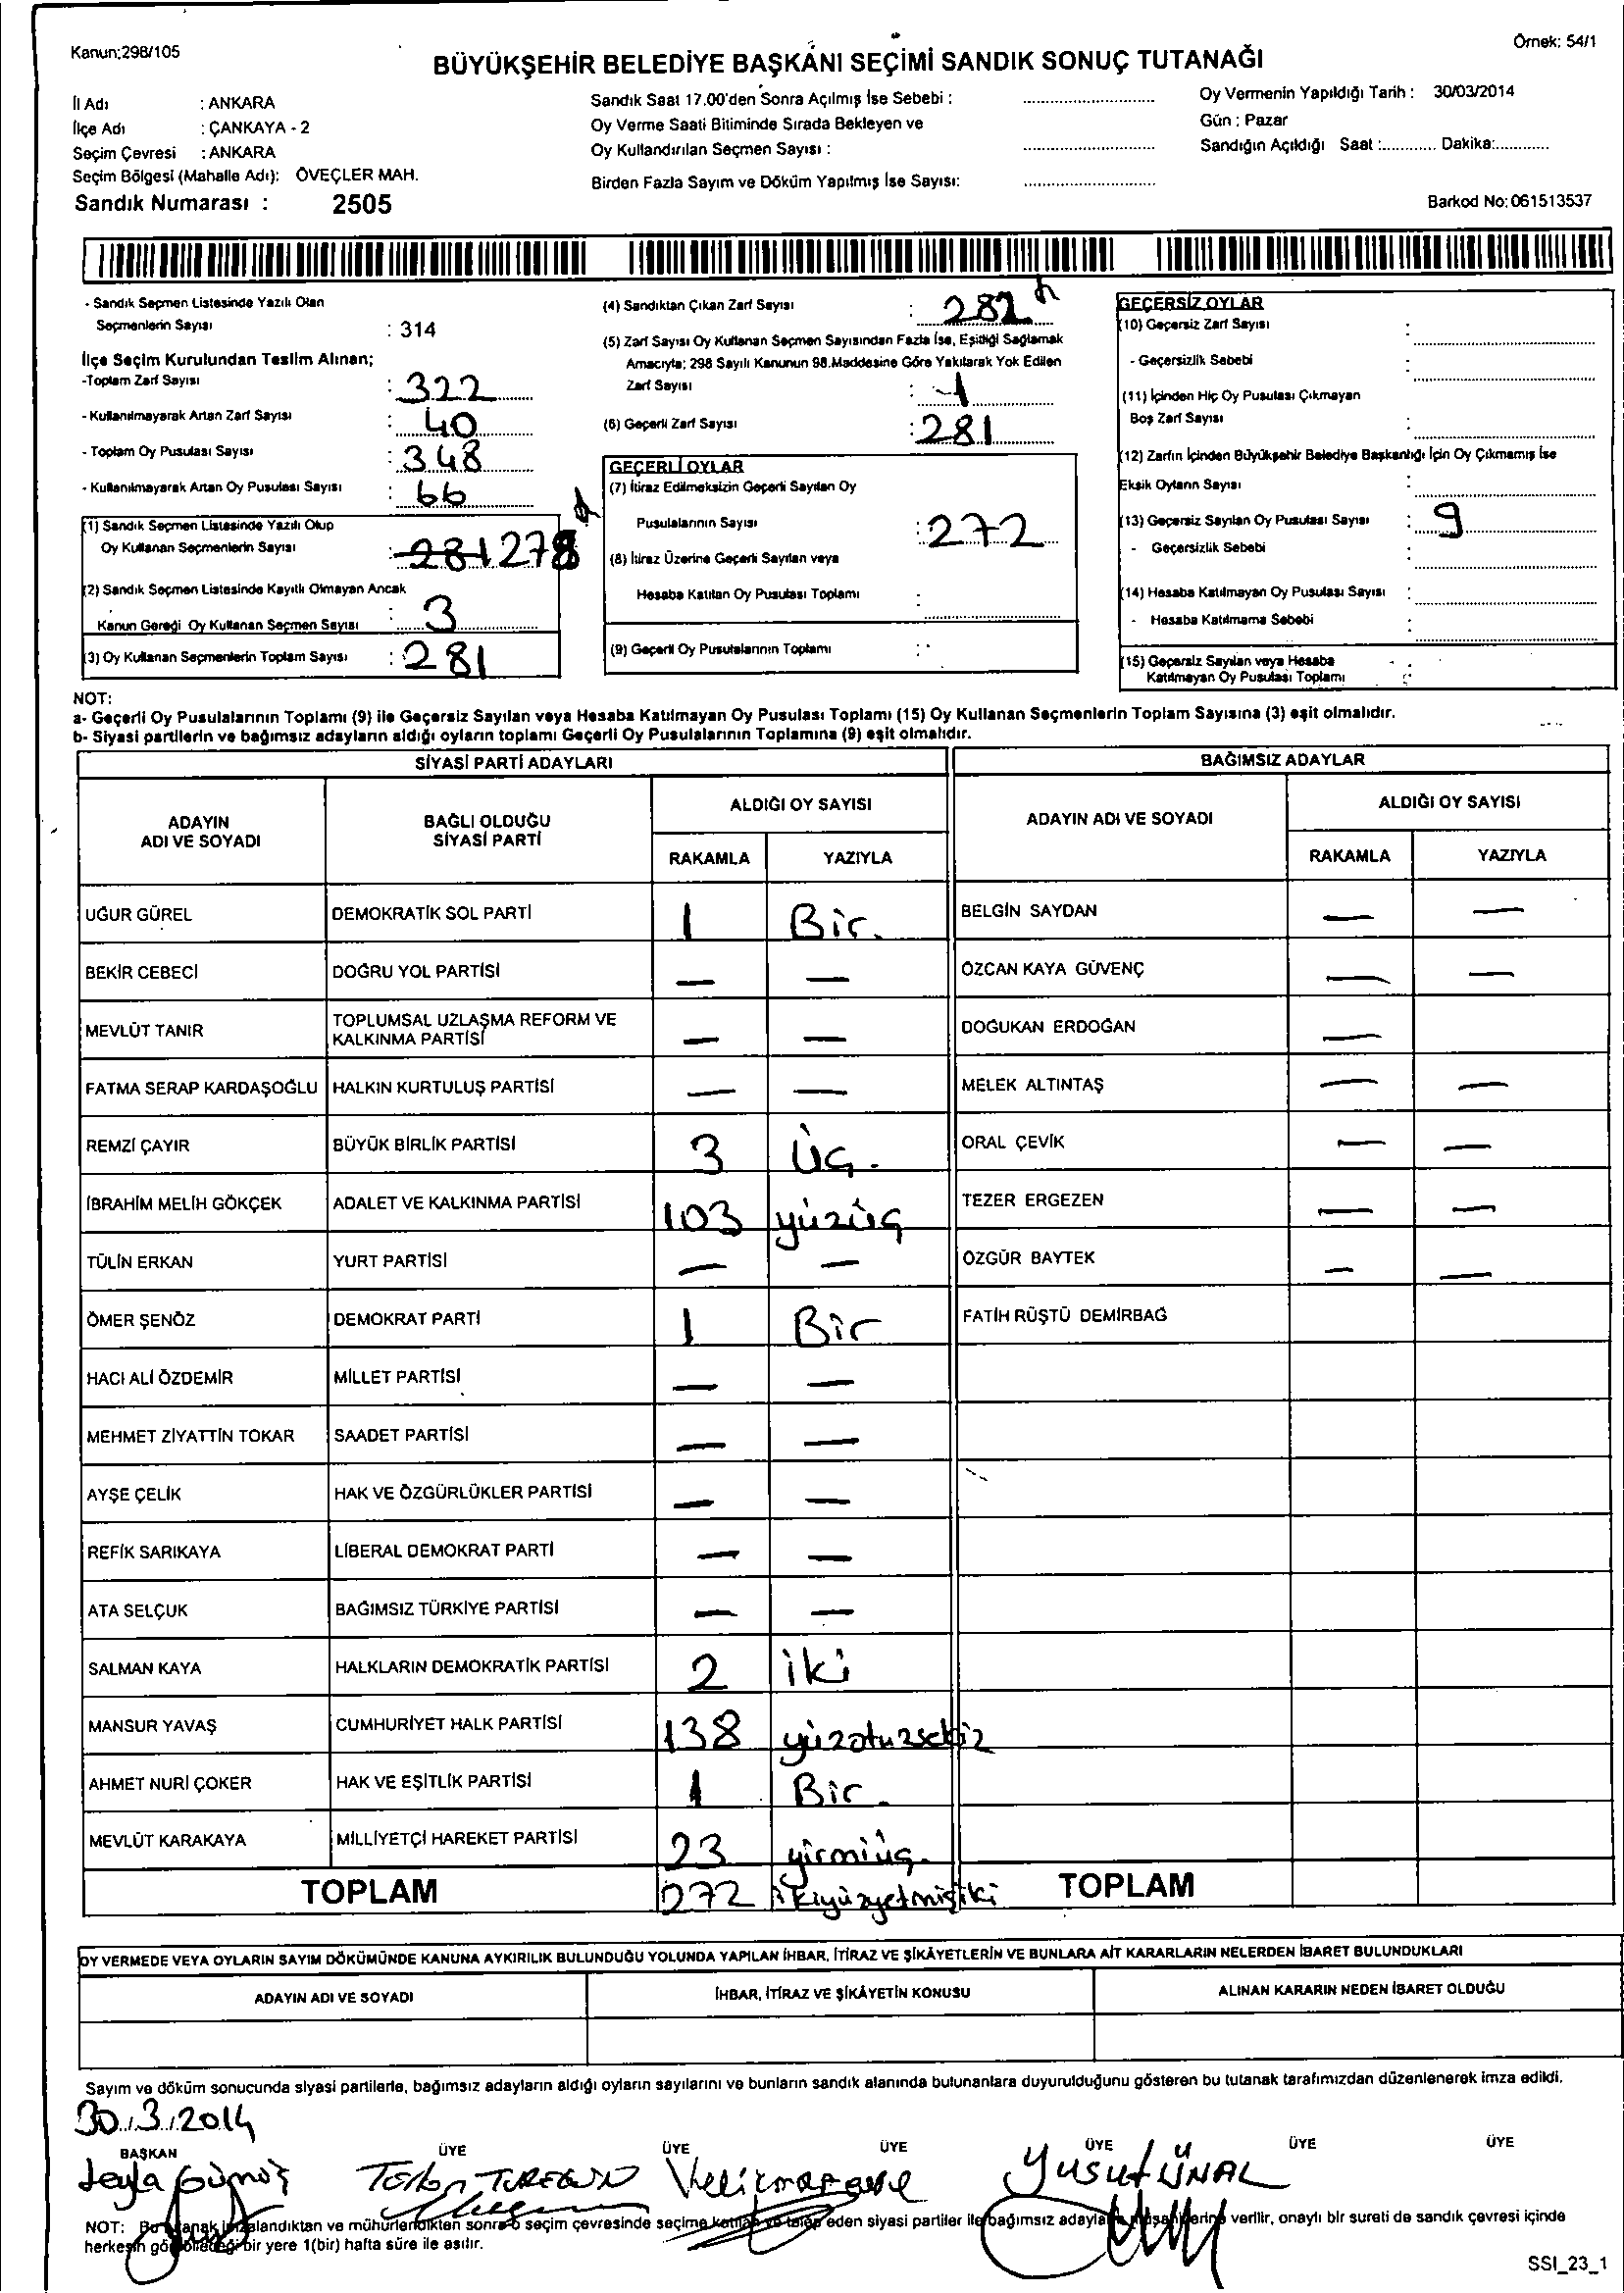 Kanun:298/105
Örnek: 54/1
BÜYÜKŞEHİR BELEDİYE BAŞKANI SEÇİMİ SANDIK SONUÇ TUTANAĞI
İl Adı : ANKARA
İlçe Adı : ÇANKAYA - 2
Seçim Çevresi : ANKARA
Seçim Bölgesi (Mahalle Adı): ÖVEÇLER MAH.
Sandık Numarası : 2505
Sandık Saat 17.00'den Sonra Açılmış İse Sebebi :
Oy Verme Saati Bitiminde Sırada Bekleyen ve
Oy Kullandırılan Seçmen Sayısı :
Birden Fazla Sayım ve Döküm Yapılmış İse Sayısı:
Oy Vermenin Yapıldığı Tarih : 30/03/2014
Gün : Pazar
Sandığın Açıldığı Saat :............ Dakika:............
Barkod No:061513537
- Sandık Seçmen Listesinde Yazılı Olan
Seçmenlerin Sayısı : 314
İlçe Seçim Kurulundan Teslim Alınan;
-Toplam Zarf Sayısı : 322
- Kullanılmayarak Artan Zarf Sayısı : 40
- Toplam Oy Pusulası Sayısı : 348
- Kullanılmayarak Artan Oy Pusulası Sayısı : 66
(1) Sandık Seçmen Listesinde Yazılı Olup
Oy Kullanan Seçmenlerin Sayısı : 281 278
(2) Sandık Seçmen Listesinde Kayıtlı Olmayan Ancak
Kanun Gereği Oy Kullanan Seçmen Sayısı : 3
(3) Oy Kullanan Seçmenlerin Toplam Sayısı : 281
(4) Sandıktan Çıkan Zarf Sayısı : 282
(5) Zarf Sayısı Oy Kullanan Seçmen Sayısından Fazla İse, Eşitliği Sağlamak
Amacıyla; 298 Sayılı Kanunun 98.Maddesine Göre Yakılarak Yok Edilen
Zarf Sayısı : -1
(6) Geçerli Zarf Sayısı : 281
GEÇERLİ OYLAR
(7) İtiraz Edilmeksizin Geçerli Sayılan Oy
Pusulalarının Sayısı : 272
(8) İtiraz Üzerine Geçerli Sayılan veya
Hesaba Katılan Oy Pusulası Toplamı :
(9) Geçerli Oy Pusulalarının Toplamı :
GEÇERSİZ OYLAR
(10) Geçersiz Zarf Sayısı :
- Geçersizlik Sebebi :
(11) İçinden Hiç Oy Pusulası Çıkmayan
Boş Zarf Sayısı :
(12) Zarfın İçinden Büyükşehir Belediye Başkanlığı İçin Oy Çıkmamış İse
Eksik Oyların Sayısı :
(13) Geçersiz Sayılan Oy Pusulası Sayısı : 9
- Geçersizlik Sebebi :
(14) Hesaba Katılmayan Oy Pusulası Sayısı :
- Hesaba Katılmama Sebebi :
(15) Geçersiz Sayılan veya Hesaba
Katılmayan Oy Pusulası Toplamı :
NOT:
a- Geçerli Oy Pusulalarının Toplamı (9) ile Geçersiz Sayılan veya Hesaba Katılmayan Oy Pusulası Toplamı (15) Oy Kullanan Seçmenlerin Toplam Sayısına (3) eşit olmalıdır.
b- Siyasi partilerin ve bağımsız adayların aldığı oyların toplamı Geçerli Oy Pusulalarının Toplamına (9) eşit olmalıdır.
SİYASİ PARTİ ADAYLARI
BAĞIMSIZ ADAYLAR
ADAYIN ADI VE SOYADI
BAĞLI OLDUĞU SİYASİ PARTİ
ALDIĞI OY SAYISI
RAKAMLA YAZIYLA
ADAYIN ADI VE SOYADI
ALDIĞI OY SAYISI
RAKAMLA YAZIYLA
UĞUR GÜREL DEMOKRATİK SOL PARTİ 1 Bir. BELGİN SAYDAN — —
BEKİR CEBECİ DOĞRU YOL PARTİSİ — — ÖZCAN KAYA GÜVENÇ — —
MEVLÜT TANIR TOPLUMSAL UZLAŞMA REFORM VE KALKINMA PARTİSİ — — DOĞUKAN ERDOĞAN —
FATMA SERAP KARDAŞOĞLU HALKIN KURTULUŞ PARTİSİ — — MELEK ALTINTAŞ — —
REMZİ ÇAYIR BÜYÜK BİRLİK PARTİSİ 3 Üç. ORAL ÇEVİK — —
İBRAHİM MELİH GÖKÇEK ADALET VE KALKINMA PARTİSİ 103 yüzüç TEZER ERGEZEN — —
TÜLİN ERKAN YURT PARTİSİ — — ÖZGÜR BAYTEK — —
ÖMER ŞENÖZ DEMOKRAT PARTİ 1 Bir FATİH RÜŞTÜ DEMİRBAĞ
HACI ALİ ÖZDEMİR MİLLET PARTİSİ — —
MEHMET ZİYATTİN TOKAR SAADET PARTİSİ — —
AYŞE ÇELİK HAK VE ÖZGÜRLÜKLER PARTİSİ — —
REFİK SARIKAYA LİBERAL DEMOKRAT PARTİ — —
ATA SELÇUK BAĞIMSIZ TÜRKİYE PARTİSİ — —
SALMAN KAYA HALKLARIN DEMOKRATİK PARTİSİ 2 iki
MANSUR YAVAŞ CUMHURİYET HALK PARTİSİ 138 yüzotuzsekiz
AHMET NURİ ÇOKER HAK VE EŞİTLİK PARTİSİ 1 Bir.
MEVLÜT KARAKAYA MİLLİYETÇİ HAREKET PARTİSİ 23 yirmiüç.
TOPLAM 272 ikiyüzyetmişiki TOPLAM
OY VERMEDE VEYA OYLARIN SAYIM DÖKÜMÜNDE KANUNA AYKIRILIK BULUNDUĞU YOLUNDA YAPILAN İHBAR, İTİRAZ VE ŞİKÂYETLERİN VE BUNLARA AİT KARARLARIN NELERDEN İBARET BULUNDUKLARI
ADAYIN ADI VE SOYADI İHBAR, İTİRAZ VE ŞİKÂYETİN KONUSU ALINAN KARARIN NEDEN İBARET OLDUĞU
Sayım ve döküm sonucunda siyasi partilerle, bağımsız adayların aldığı oyların sayılarını ve bunların sandık alanında bulunanlara duyurulduğunu gösteren bu tutanak tarafımızdan düzenlenerek imza edildi.
30.3.2014
BAŞKAN ÜYE ÜYE ÜYE ÜYE ÜYE ÜYE
Leyla Gümüş Yusuf ÜNAL
NOT: Bu tutanak imzalandıktan ve mühürlendikten sonra o seçim çevresinde seçime katılan ve talep eden siyasi partiler ile bağımsız adayların müşahitlerine verilir, onaylı bir sureti de sandık çevresi içinde
herkesin görebileceği bir yere 1(bir) hafta süre ile asılır.
SSI_23_1